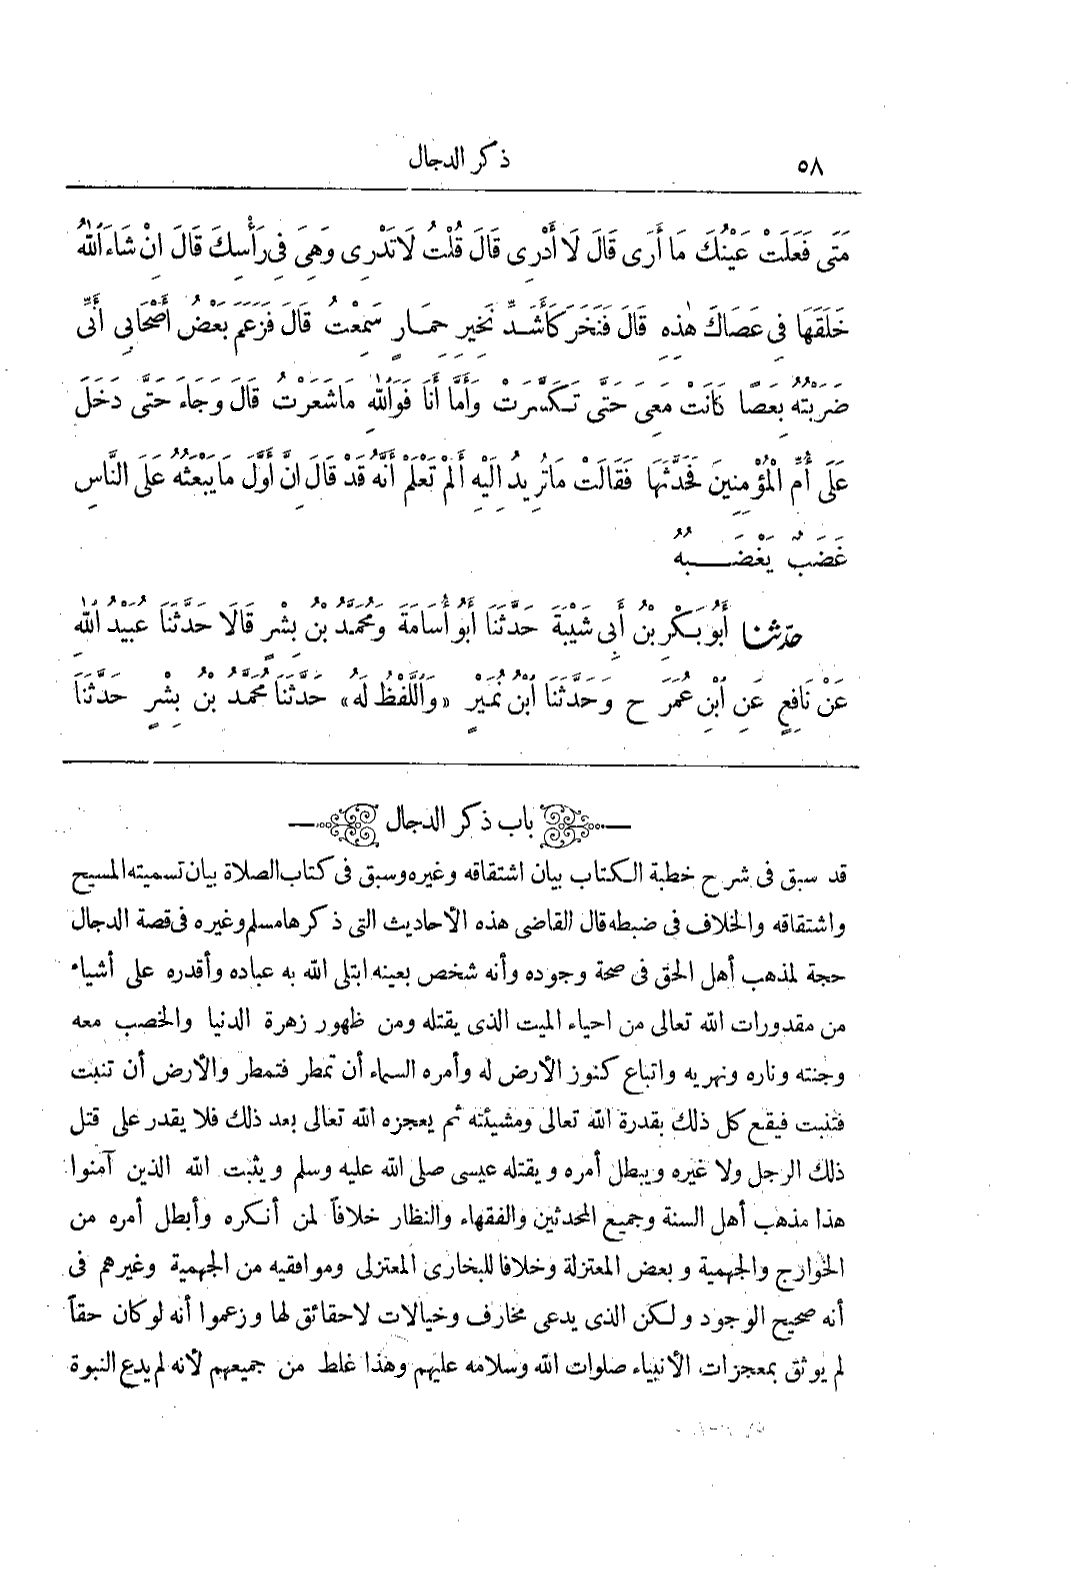 ٥٨
ذكر الدجال
مَتَى فَعَلَتْ عَيْنُكَ مَا أَرَى قَالَ لَا أَدْرِى قَالَ قُلْتُ لَا تَدْرِى وَهِىَ فِى رَأْسِكَ قَالَ اِنْ شَاءَ اللهُ
خَلَقَهَا فِى عَصَاكَ هٰذِهِ قَالَ فَنَخَرَ كَأَشَدِّ نَخِيرِ حِمَارٍ سَمِعْتُ قَالَ فَزَعَمَ بَعْضُ أَصْحَابِى أَنِّى
ضَرَبْتُهُ بِعَصًا كَانَتْ مَعِىَ حَتَّى تَكَسَّرَتْ وَأَمَّا أَنَا فَوَاللهِ مَا شَعَرْتُ قَالَ وَجَاءَ حَتَّى دَخَلَ
عَلَى أُمِّ الْمُؤْمِنِينَ فَحَدَّثَهَا فَقَالَتْ مَا تُرِيدُ اِلَيْهِ أَلَمْ تَعْلَمْ أَنَّهُ قَدْ قَالَ اِنَّ أَوَّلَ مَا يَبْعَثُهُ عَلَى النَّاسِ
غَضَبٌ يَغْضَبُهُ
حدثنا أَبُو بَكْرِ بْنُ أَبِى شَيْبَةَ حَدَّثَنَا أَبُو أُسَامَةَ وَمُحَمَّدُ بْنُ بِشْرٍ قَالَا حَدَّثَنَا عُبَيْدُ اللهِ
عَنْ نَافِعٍ عَنِ ابْنِ عُمَرَ ح وَحَدَّثَنَا ابْنُ نُمَيْرٍ «وَاللَّفْظُ لَهُ» حَدَّثَنَا مُحَمَّدُ بْنُ بِشْرٍ حَدَّثَنَا
باب ذكر الدجال
قد سبق فى شرح خطبة الكتاب بيان اشتقاقه وغيره وسبق فى كتاب الصلاة بيان تسميته المسيح
واشتقاقه والخلاف فى ضبطه قال القاضى هذه الأحاديث التى ذكرها مسلم وغيره فى قصة الدجال
حجة لمذهب أهل الحق فى صحة وجوده وأنه شخص بعينه ابتلى الله به عباده وأقدره على أشياء
من مقدورات الله تعالى من احياء الميت الذى يقتله ومن ظهور زهرة الدنيا والخصب معه
وجنته وناره ونهريه واتباع كنوز الأرض له وأمره السماء أن تمطر فتمطر والأرض أن تنبت
فتنبت فيقع كل ذلك بقدرة الله تعالى ومشيئته ثم يعجزه الله تعالى بعد ذلك فلا يقدر على قتل
ذلك الرجل ولا غيره ويبطل أمره ويقتله عيسى صلى الله عليه وسلم ويثبت الله الذين آمنوا
هذا مذهب أهل السنة وجميع المحدثين والفقهاء والنظار خلافاً لمن أنكره وأبطل أمره من
الخوارج والجهمية وبعض المعتزلة وخلافا للبخارى المعتزلى وموافقيه من الجهمية وغيرهم فى
أنه صحيح الوجود ولكن الذى يدعى مخارف وخيالات لا حقائق لها وزعموا أنه لو كان حقاً
لم يوثق بمعجزات الأنبياء صلوات الله وسلامه عليهم وهذا غلط من جميعهم لأنه لم يدع النبوة